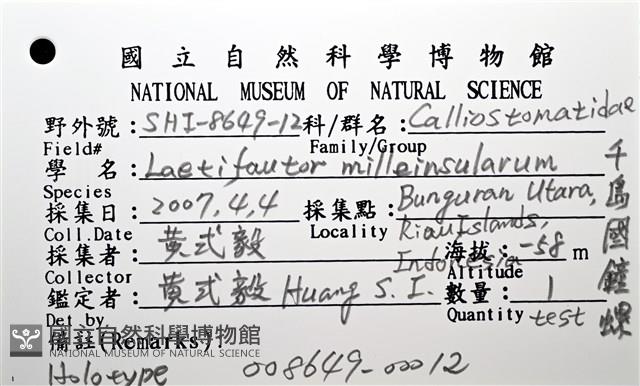 國立自然科學博物館
NATIONAL MUSEUM OF NATURAL SCIENCE
野外號：SHI-8649-12 科/群名：Calliostomatidae
Field# Family/Group
學 名：Laetifautor milleinsularum
Species
採集日：2007,4,4 採集點：Bunguran Utara,
Coll.Date Locality Riau Islands,
採集者：黃式毅 海拔：-58 m
Indonesia
Collector Altitude
鑑定者：黃式毅 Huang S. I. 數量：1
Det by Quantity test
備註(Remarks)：
國立自然科學博物館
NATIONAL MUSEUM OF NATURAL SCIENCE
Holotype 008649-00012
千島國鐘螺